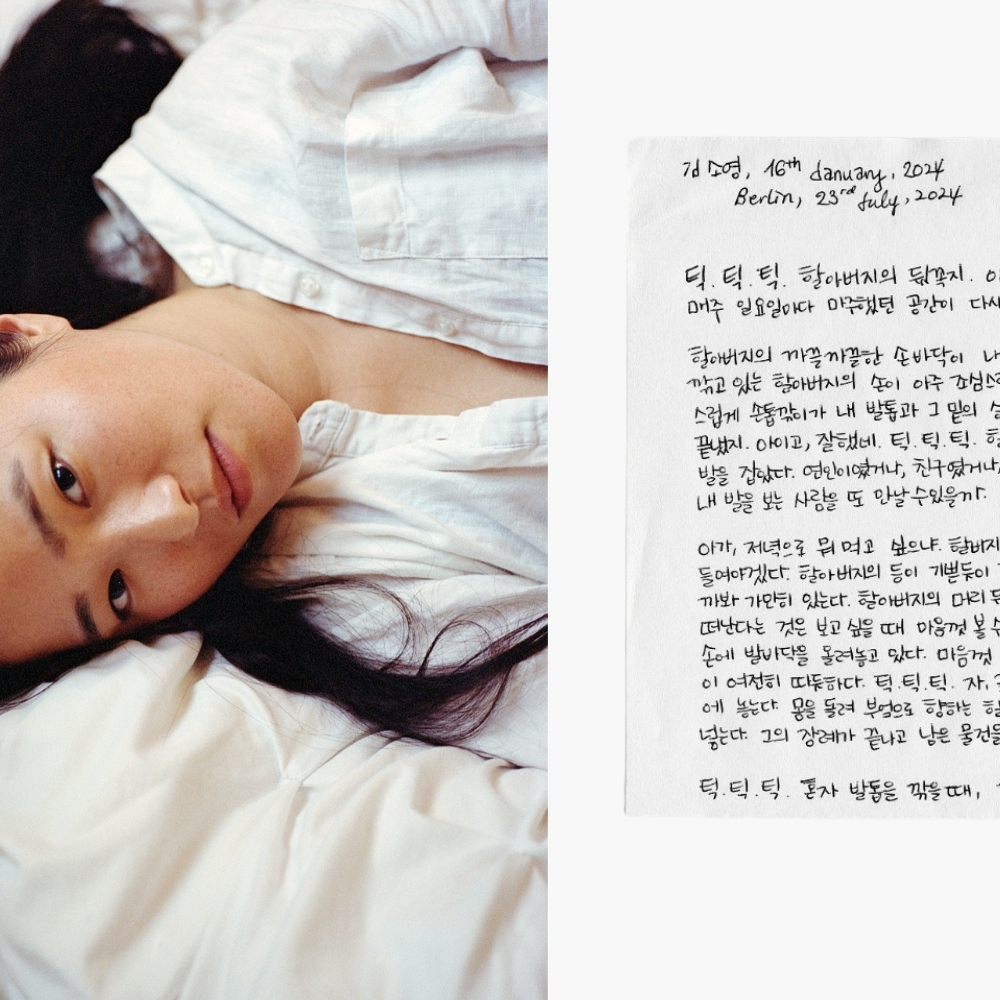 김소영, 16th January, 2024
Berlin, 23rd July, 2024
틱. 틱. 틱. 할아버지의 뒷꼭지.
매주 일요일마다 마주했던 공간이 다시
할아버지의 까끌까끌한 손바닥이
깎고 있는 할아버지의 손이 아주 조심스
스럽게 손톱깎이가 내 발톱과 그 밑의
끝냈지. 아이고, 잘했네. 틱. 틱. 틱.
발을 잡았다. 연인이였거나, 친구였거나,
내 발을 보는 사람을 또 만날 수 있을까.
아가, 저녁으로 뭐 먹고 싶으냐. 할버지
들여야겠다. 할아버지의 등이 기쁜듯이
까봐 가만히 있는다. 할아버지의 머리
떠난다는 것은 보고싶을 때 마음껏 볼 수
손에 발바닥을 올려놓고 있다. 마음껏
이 여전히 따듯하다. 틱. 틱. 틱. 자,
에 놓는다. 몸을 돌려 부엌으로 향하는
넣는다. 그의 장례가 끝나고 남은 물건들
틱. 틱. 틱. 혼자 발톱을 깎을 때,